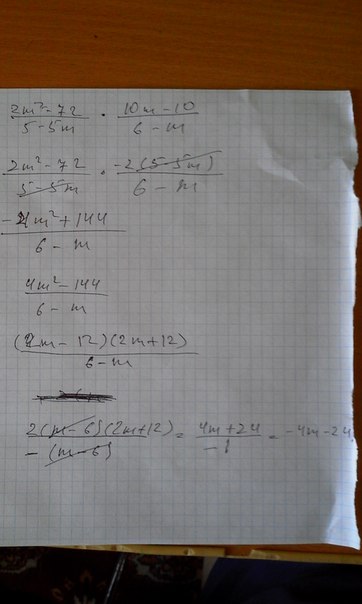 2m²-72 / 5-5m · 10m-10 / 6-m
2m²-72 / 5-5m · -2(5-5m) / 6-m
-4m²+144 / 6-m
4m²-144 / 6-m
(2m-12)(2m+12) / 6-m
2(m-6)(2m+12) / -(m-6) = 4m+24 / -1 = -4m-24